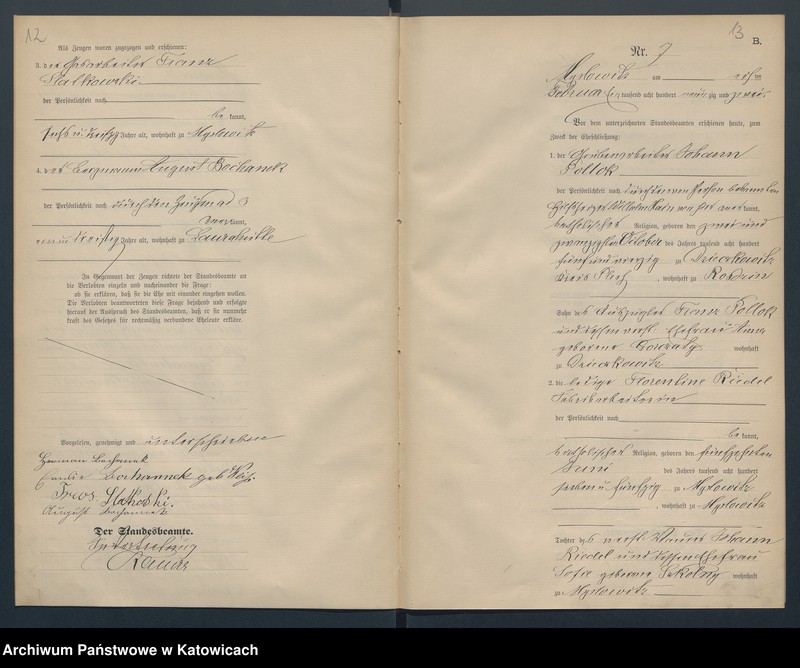 12
Als Zeugen waren zugezogen und erschienen:
3. der Grubenarbeiter Franz
Slatkowski
der Persönlichkeit nach
be kannt,
sechs u. dreißig Jahre alt, wohnhaft zu Myslowitz
4. der Bergmann August Bochanek
der Persönlichkeit nach durch den Zeugen ad 3
kannt,
dreißig Jahre alt, wohnhaft zu Laurahütte
In Gegenwart der Zeugen richtete der Standesbeamte an
die Verlobten einzeln und nacheinander die Frage:
ob sie erklären, daß sie die Ehe mit einander eingehen wollen.
Die Verlobten beantworteten diese Frage bejahend und erfolgte
hierauf der Ausspruch des Standesbeamten, daß er sie nunmehr
kraft des Gesetzes für rechtmäßig verbundene Eheleute erkläre.
Vorgelesen, genehmigt und unterschrieben
Herman Bochanek
Bochannek geb.
Slatkoski.
August Bochannek
Der Standesbeamte.
13
B.
Nr. 7
Myslowitz am
Februar tausend acht hundert neunzig und zwei
Vor dem unterzeichneten Standesbeamten erschienen heute, zum
Zweck der Eheschließung:
1. der Grubenarbeiter Johann
Poltok
der Persönlichkeit nach durch den von Person bekannten
Wilhelm von hier aner kannt,
katholischer Religion, geboren den zwei und
zwanzigsten October des Jahres tausend acht hundert
fünf und vierzig zu Dzieczkowitz
Kreis Pleß, wohnhaft zu Rosdzin
Sohn des Auszügler Franz Poltok
und dessen verst. Ehefrau Anna
geborene wohnhaft
zu Dzieczkowitz
2. die ledige Florentine Riedel
Fabrikarbeiterin
der Persönlichkeit nach
be kannt,
katholischer Religion, geboren den fünfzehnten
Juni des Jahres tausend acht hundert
sieben u. fünfzig zu Myslowitz
, wohnhaft zu Myslowitz
Tochter des verst. Johann
Riedel und dessen Ehefrau
Sofie geborene wohnhaft
zu Myslowitz
Archiwum Państwowe w Katowicach